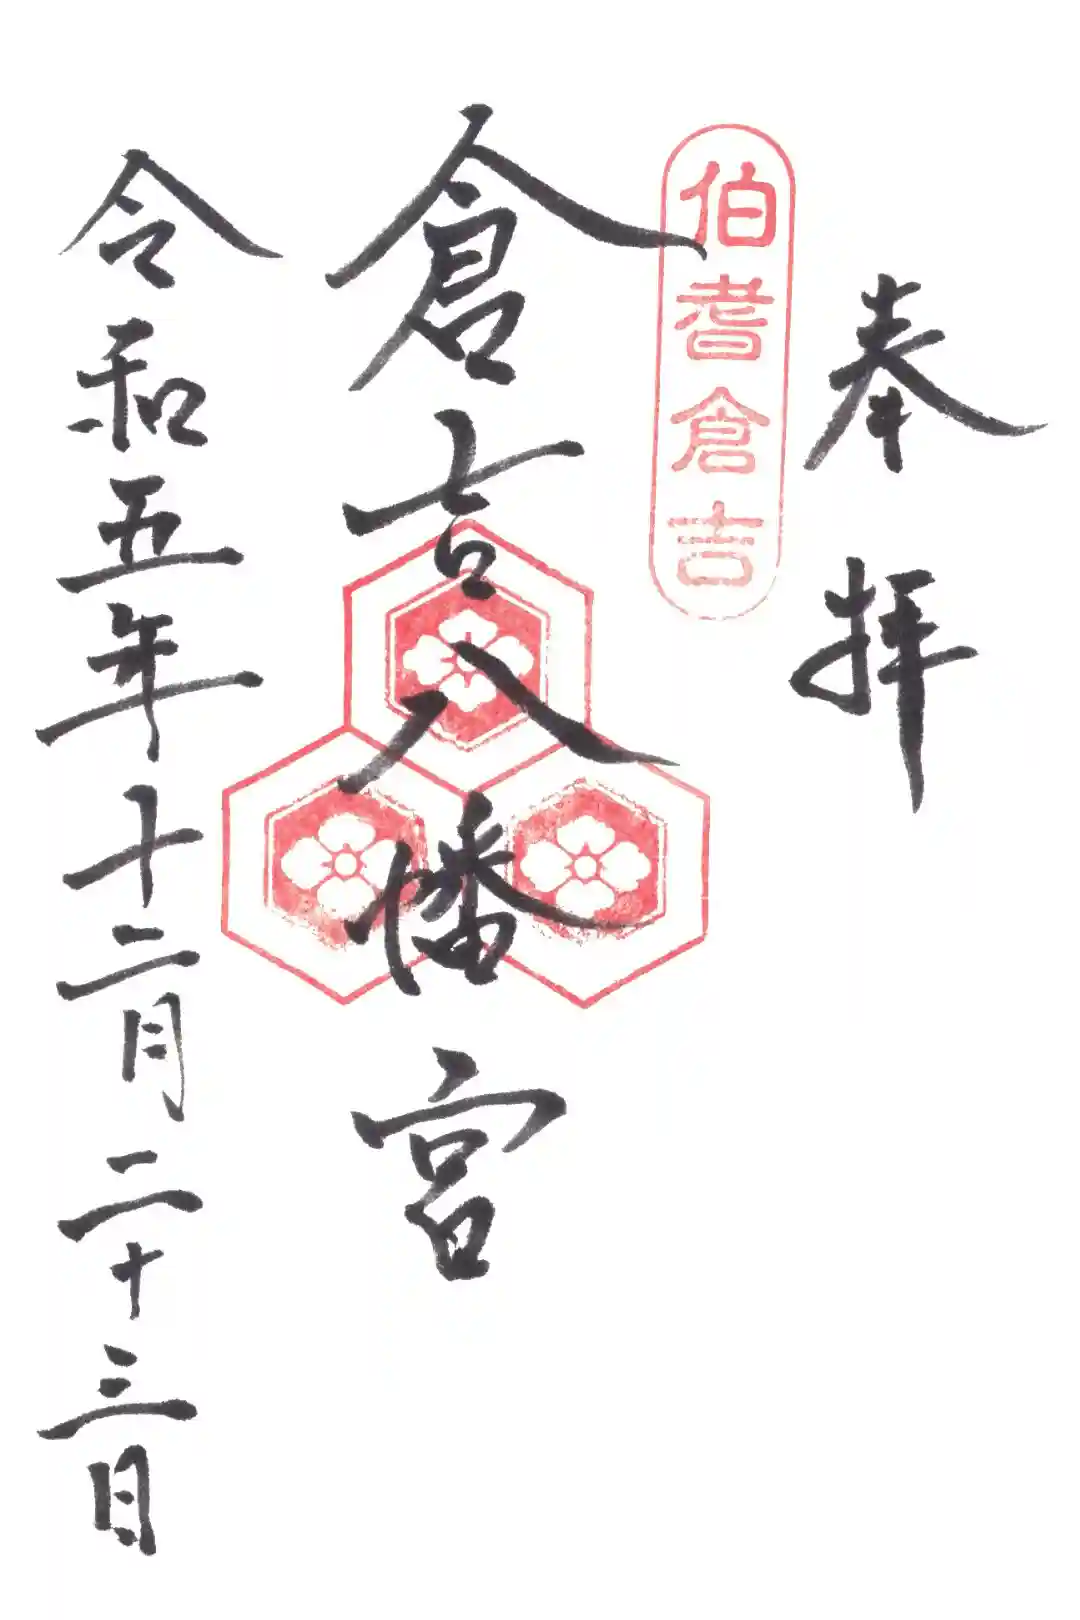 奉拝
伯耆倉吉
倉吉八幡宮
令和五年十二月二十三日